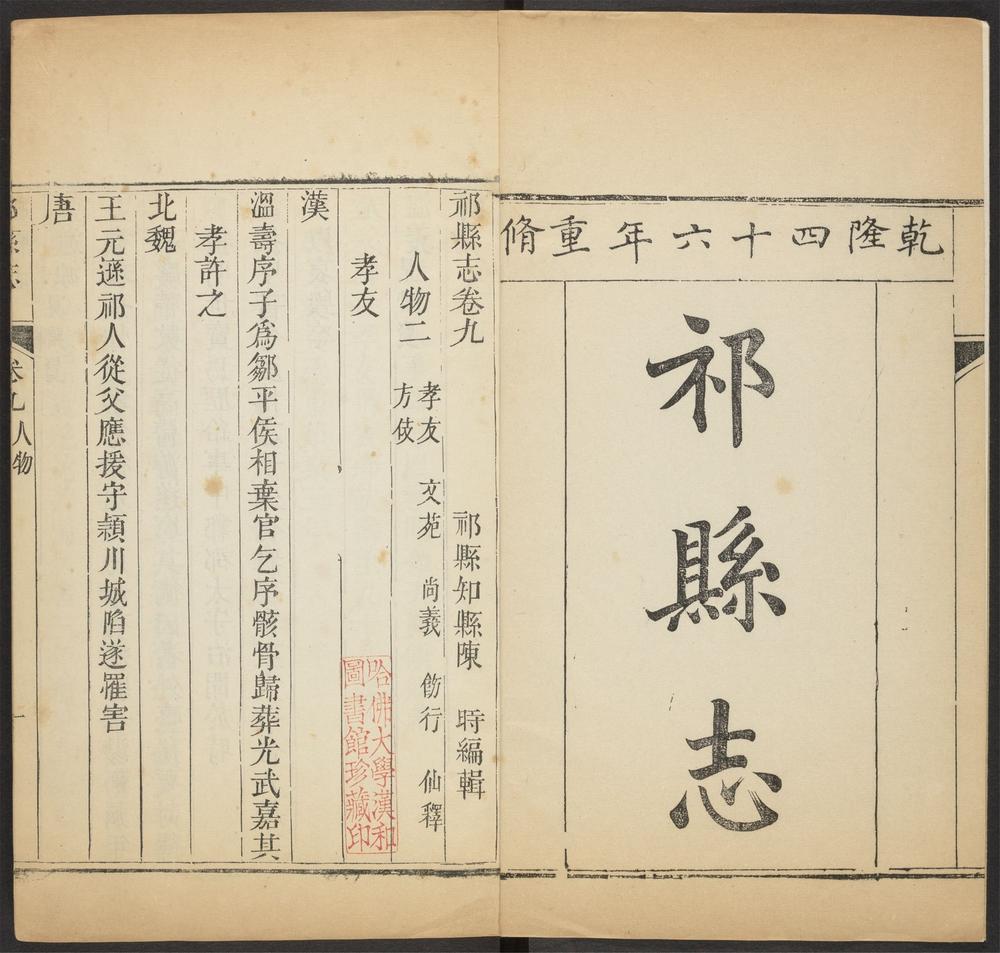 乾隆四十六年重脩
祁縣志
祁縣志卷九
祁縣知縣陳 時編輯
人物二 孝友 文苑 尚義 飭行 仙釋
方伎
孝友
漢
溫壽序子為鄒平侯相棄官乞序骸骨歸葬光武嘉其
孝許之
北魏
王元遜祁人從父應援守頴川城陷遂罹害
唐
祁縣志
卷九人物
一
哈佛大學漢和
圖書館珍藏印